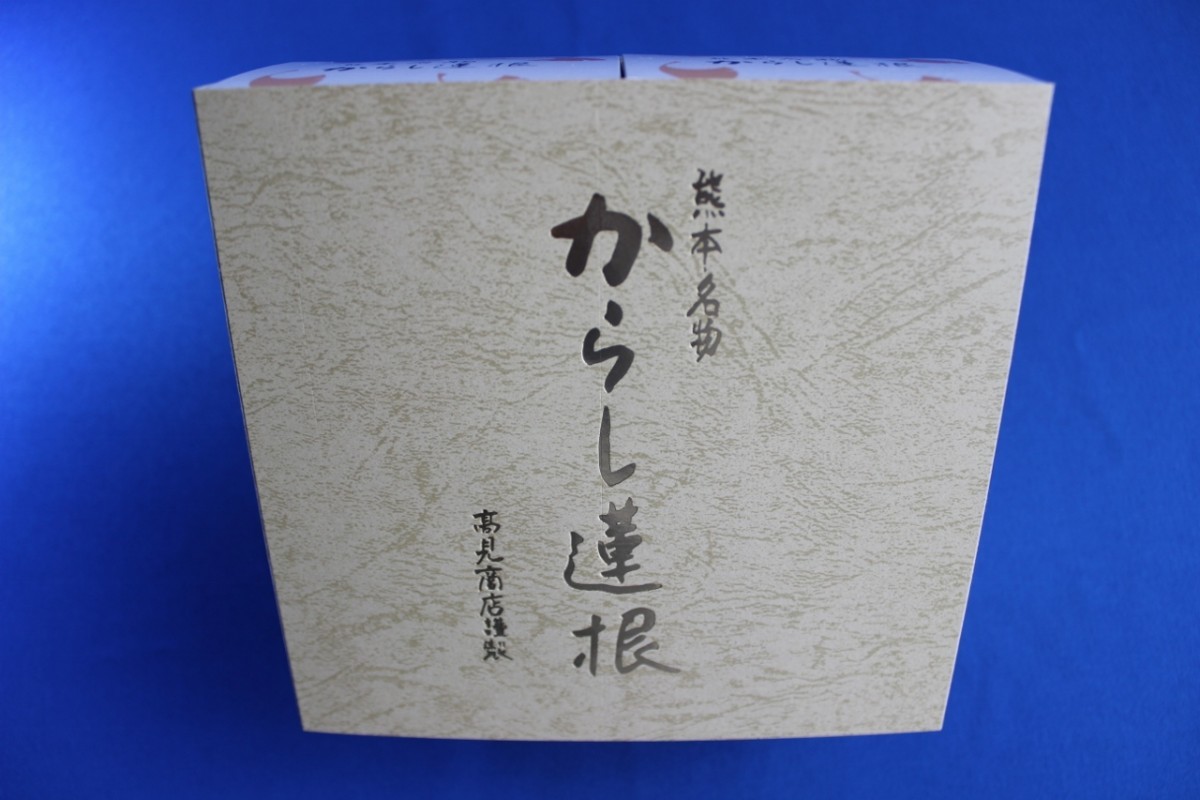 熊本名物
からし蓮根
髙見商店謹製